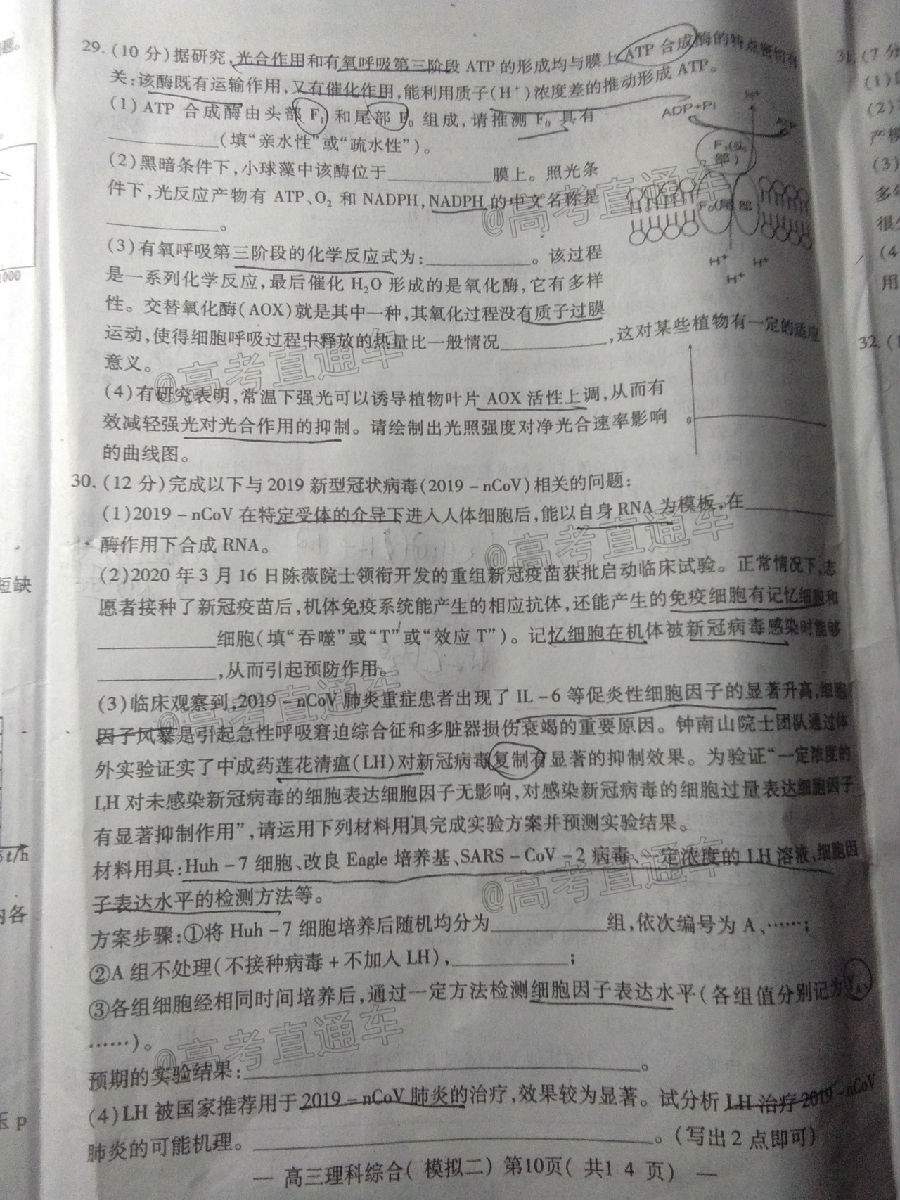 29. (10 分)据研究,光合作用和有氧呼吸第三阶段 ATP 的形成均与膜上 ATP 合成酶的特点密切有
关:该酶既有运输作用,又有催化作用,能利用质子(H⁺)浓度差的推动形成 ATP。
(1) ATP 合成酶由头部 F₁ 和尾部 F₀ 组成,请推测 F₀ 具有
__________(填“亲水性”或“疏水性”)。
(2)黑暗条件下,小球藻中该酶位于__________膜上。照光条
件下,光反应产物有 ATP、O₂ 和 NADPH,NADPH 的中文名称是
__________。
(3)有氧呼吸第三阶段的化学反应式为:__________。该过程
是一系列化学反应,最后催化 H₂O 形成的是氧化酶,它有多样
性。交替氧化酶(AOX)就是其中一种,其氧化过程没有质子过膜
运动,使得细胞呼吸过程中释放的热量比一般情况__________,这对某些植物有一定的适应
意义。
(4)有研究表明,常温下强光可以诱导植物叶片 AOX 活性上调,从而有
效减轻强光对光合作用的抑制。请绘制出光照强度对净光合速率影响
的曲线图。
H⁺
ADP+Pi
ATP
F₀(尾部)
H⁺ H⁺
H⁺ H⁺
0
30. (12 分)完成以下与 2019 新型冠状病毒(2019-nCoV)相关的问题:
(1)2019-nCoV 在特定受体的介导下进入人体细胞后,能以自身 RNA 为模板,在__________
酶作用下合成 RNA。
(2)2020 年 3 月 16 日陈薇院士领衔开发的重组新冠疫苗获批启动临床试验。正常情况下,志
愿者接种了新冠疫苗后,机体免疫系统能产生的相应抗体,还能产生的免疫细胞有记忆细胞和
__________细胞(填“吞噬”或“T”或“效应 T”)。记忆细胞在机体被新冠病毒感染时能够
__________,从而引起预防作用。
(3)临床观察到,2019-nCoV 肺炎重症患者出现了 IL-6 等促炎性细胞因子的显著升高,细胞
因子风暴是引起急性呼吸窘迫综合征和多脏器损伤衰竭的重要原因。钟南山院士团队通过体
外实验证实了中成药莲花清瘟(LH)对新冠病毒复制有显著的抑制效果。为验证“一定浓度的
LH 对未感染新冠病毒的细胞表达细胞因子无影响,对感染新冠病毒的细胞过量表达细胞因子
有显著抑制作用”,请运用下列材料用具完成实验方案并预测实验结果。
材料用具:Huh-7 细胞、改良 Eagle 培养基、SARS-CoV-2 病毒、一定浓度的 LH 溶液,细胞因
子表达水平的检测方法等。
方案步骤:①将 Huh-7 细胞培养后随机均分为__________组,依次编号为 A、……;
②A 组不处理(不接种病毒+不加入 LH),__________;
③各组细胞经相同时间培养后,通过一定方法检测细胞因子表达水平(各组值分别记为
……)。
预期的实验结果:__________。
(4)LH 被国家推荐用于 2019-nCoV 肺炎的治疗,效果较为显著。试分析 LH 治疗 2019-nCoV
肺炎的可能机理。__________。(写出 2 点即可)
— 高三理科综合(模拟二) 第10页(共14页) —
@高考直通车
@高考直通车
@高考直通车
@高考直通车
@高考直通车
@高考直通车
题。
1000
短缺
t/h
内各
玉 p
31. (7 分
(1)
(2)
产模
(3)
多年
很
(4
用
32. (1